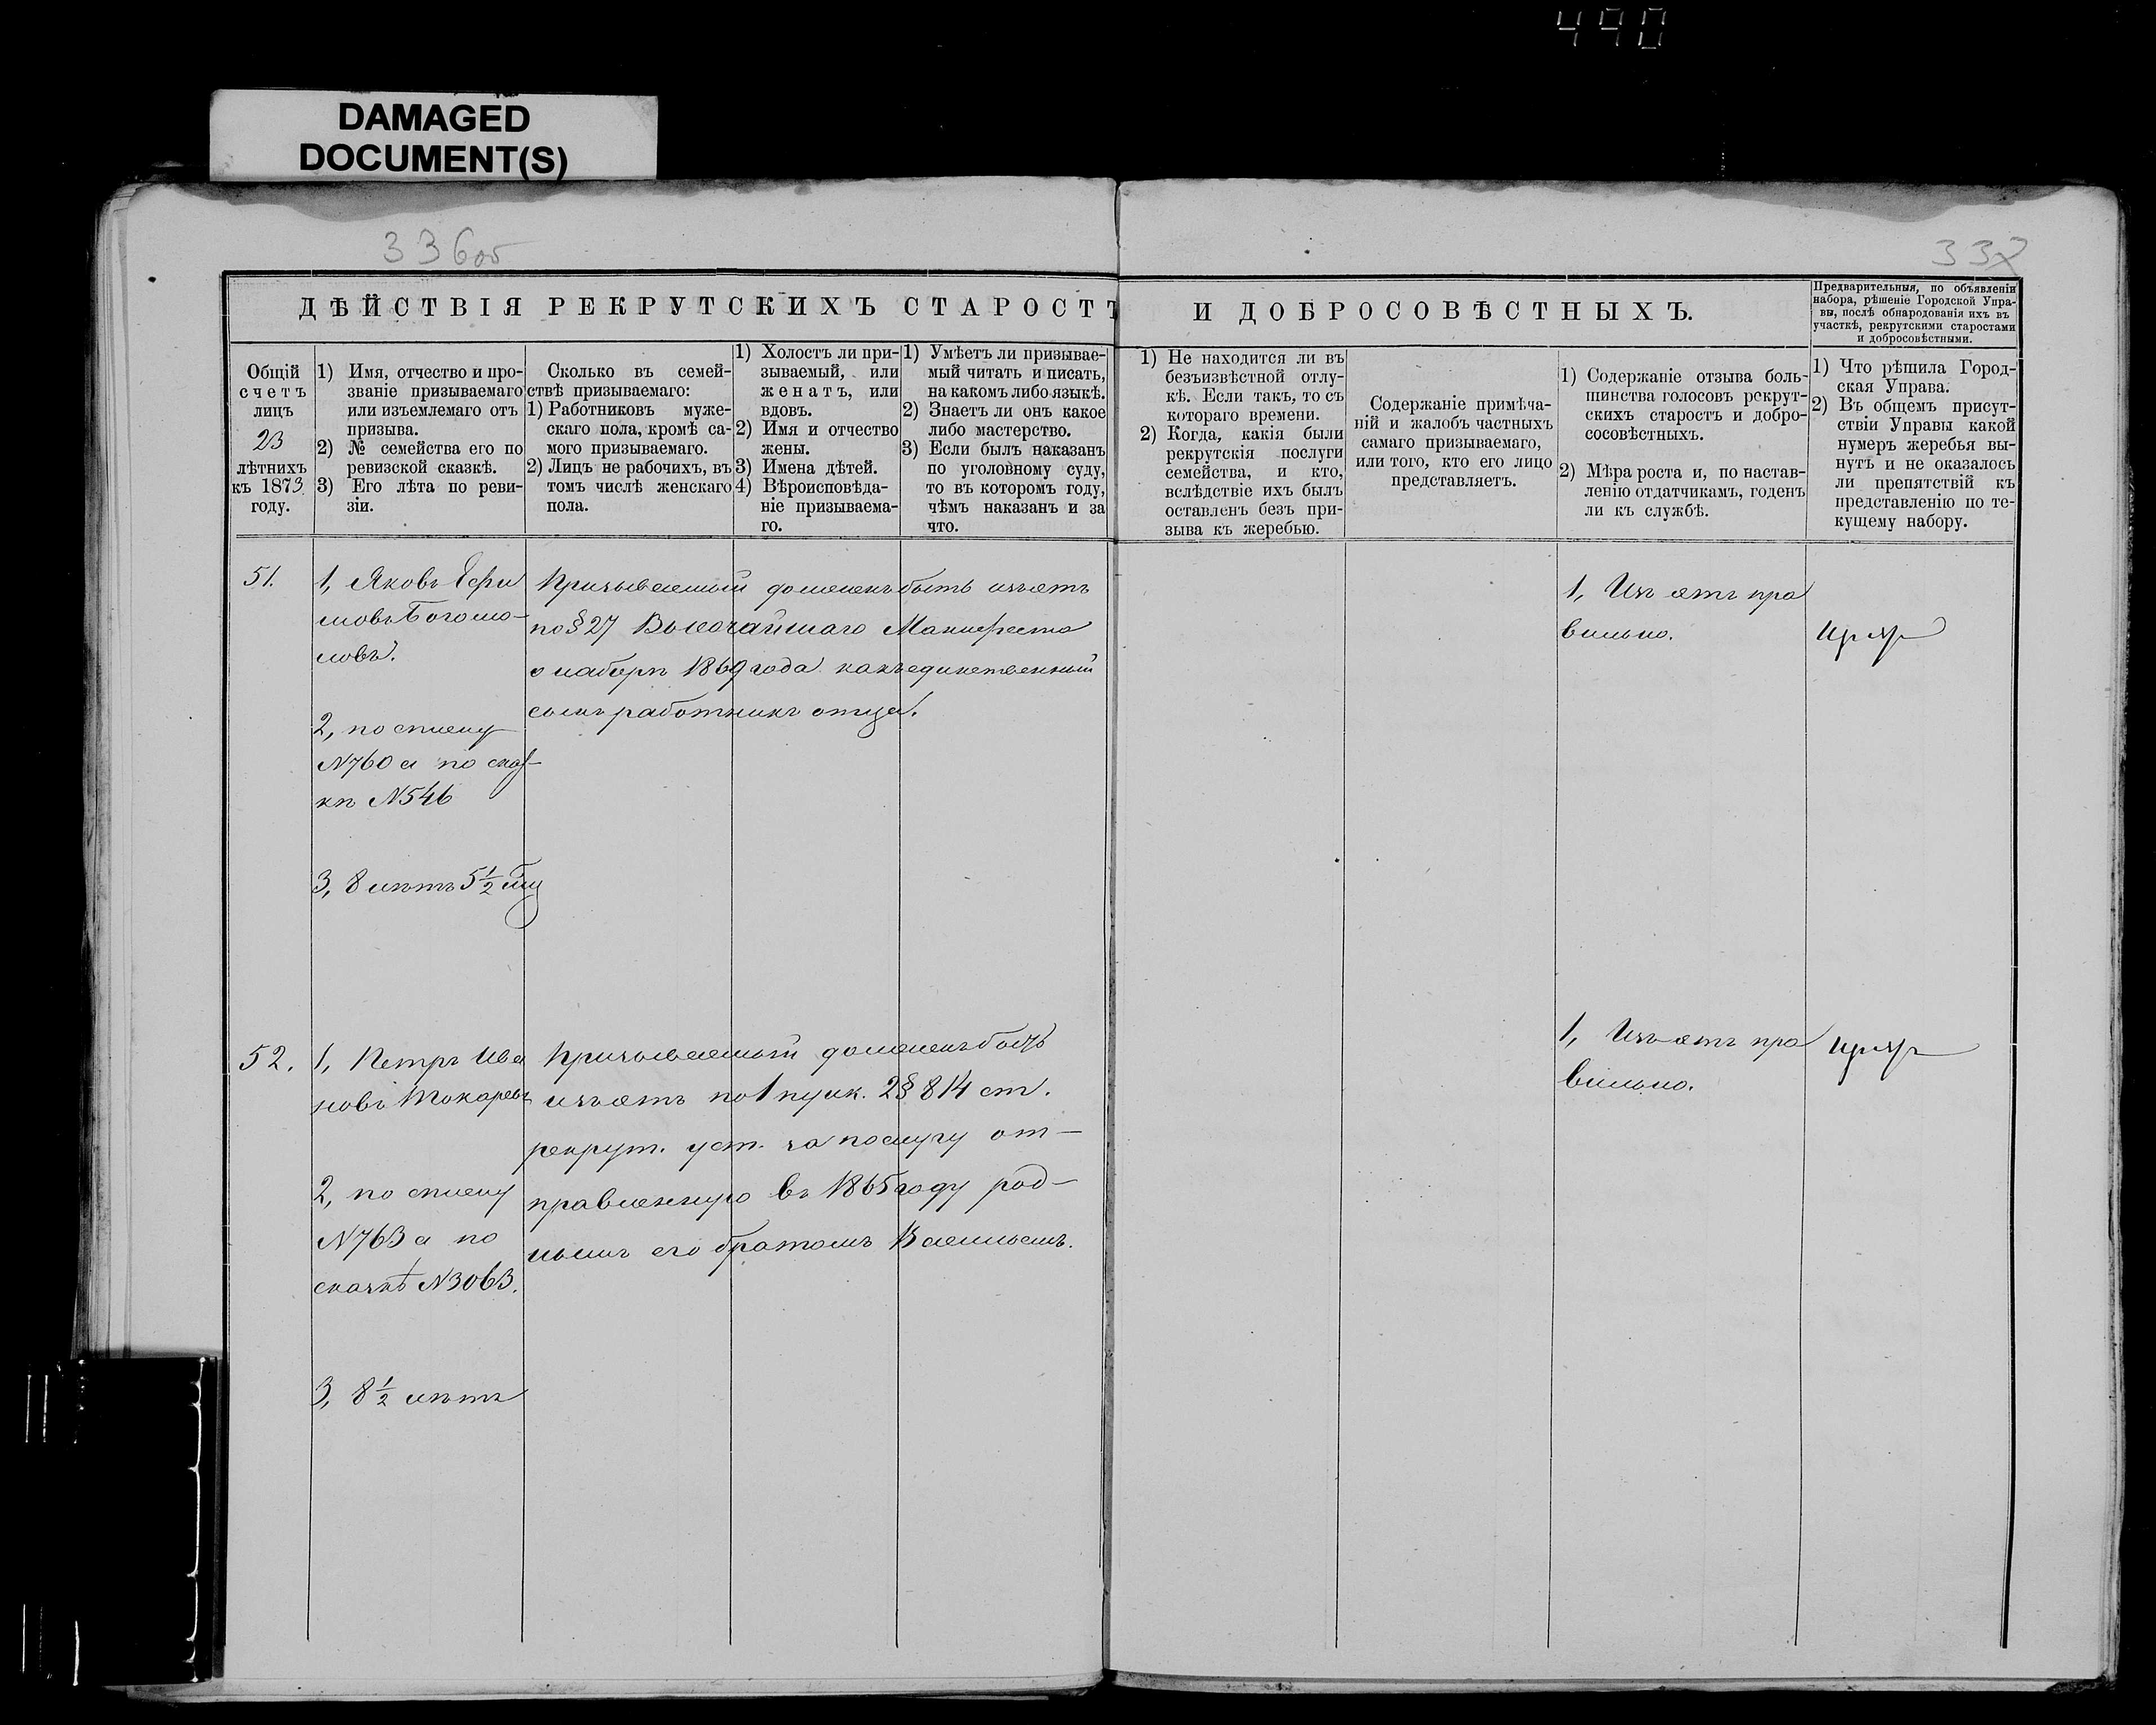 490
DAMAGED
DOCUMENT(S)
336об
337
ДѢЙСТВІЯ РЕКРУТСКИХЪ СТАРОСТЪ И ДОБРОСОВѢСТНЫХЪ.
Предварительныя, по объявленіи
набора, рѣшеніе Городской Упра-
вы, послѣ обнародованія ихъ въ
участкѣ, рекрутскими старостами
и добросовѣстными.
Общій
счетъ
лицъ
23
лѣтнихъ
къ 1873
году.
1) Имя, отчество и про-
званіе призываемаго
или изъемлемаго отъ
призыва.
2) № семейства его по
ревизской сказкѣ.
3) Его лѣта по реви-
зіи.
Сколько въ семей-
ствѣ призываемаго:
1) Работниковъ муже-
скаго пола, кромѣ са-
мого призываемаго.
2) Лицъ не рабочихъ, въ
томъ числѣ женскаго
пола.
1) Холостъ ли при-
зываемый, или
женатъ, или
вдовъ.
2) Имя и отчество
жены.
3) Имена дѣтей.
4) Вѣроисповѣда-
ніе призываема-
го.
1) Умѣетъ ли призывае-
мый читать и писать,
на какомъ либо языкѣ.
2) Знаетъ ли онъ какое
либо мастерство.
3) Если былъ наказанъ
по уголовному суду,
то въ которомъ году,
чѣмъ наказанъ и за
что.
1) Не находится ли въ
безъизвѣстной отлу-
кѣ. Если такъ, то съ
котораго времени.
2) Когда, какія были
рекрутскія послуги
семейства, и кто,
вслѣдствіе ихъ былъ
оставленъ безъ при-
зыва къ жеребью.
Содержаніе примѣча-
ній и жалобъ частныхъ
самаго призываемаго,
или того, кто его лицо
представляетъ.
1) Содержаніе отзыва боль-
шинства голосовъ рекрут-
скихъ старостъ и добро-
сосовѣстныхъ.
2) Мѣра роста и, по настав-
ленію отдатчикамъ, годенъ
ли къ службѣ.
1) Что рѣшила Город-
ская Управа.
2) Въ общемъ присут-
ствіи Управы какой
нумеръ жеребья вы-
нутъ и не оказалось
ли препятствій къ
представленію по те-
кущему набору.
51.
1, Яковъ Ефи
мовъ Богомо-
ловъ.
2, по списку
N760 а по сказ-
кѣ N546
3, 8 лѣтъ 5½ мц
Призываемый долженъ быть изъятъ
по § 27 Высочайшаго Манифеста
о наборѣ 1869 года какъ единственный
сынъ работникъ отца.
1, Изъятъ пра
вильно.
52.
1, Петръ Ива
новъ Токаревъ
2, по списку
N763 а по
сказкѣ N3063.
3, 8½ лѣтъ
Призываемый долженъ быть
изъятъ по 1 пунк. 2§ 814 ст.
рекрут. уст. за послугу от-
правленную въ 1865 году род-
нымъ его братомъ Васильемъ.
1, Изъятъ пра
вильно.